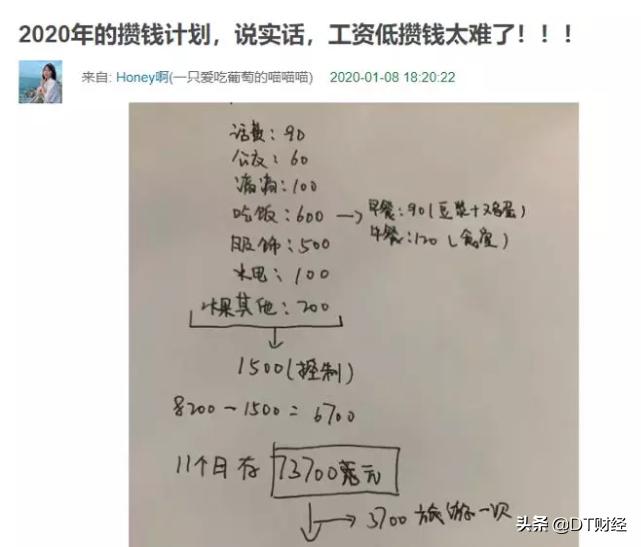 2020年的攒钱计划，说实话，工资低攒钱太难了！！！
来自: Honey啊(一只爱吃葡萄的喵喵喵) 2020-01-08 18:20:22
话费: 90
公交: 60
滴滴: 100
吃饭: 600 → 早餐: 90 (豆浆+鸡蛋)
午餐: 120 (食堂)
服饰: 500
水电: 100
水果其他: 200
1500 (控制)
8200 - 1500 = 6700
11个月存 73700
→ 3700 旅游一次
头条 @DT财经